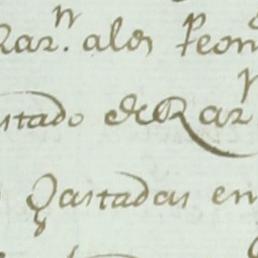 Rar.ⁿ alos Peon
stado de Rar
Gastadas en